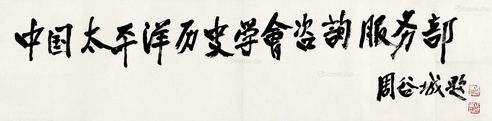 中国太平洋历史学會咨詢服务部
周谷城题